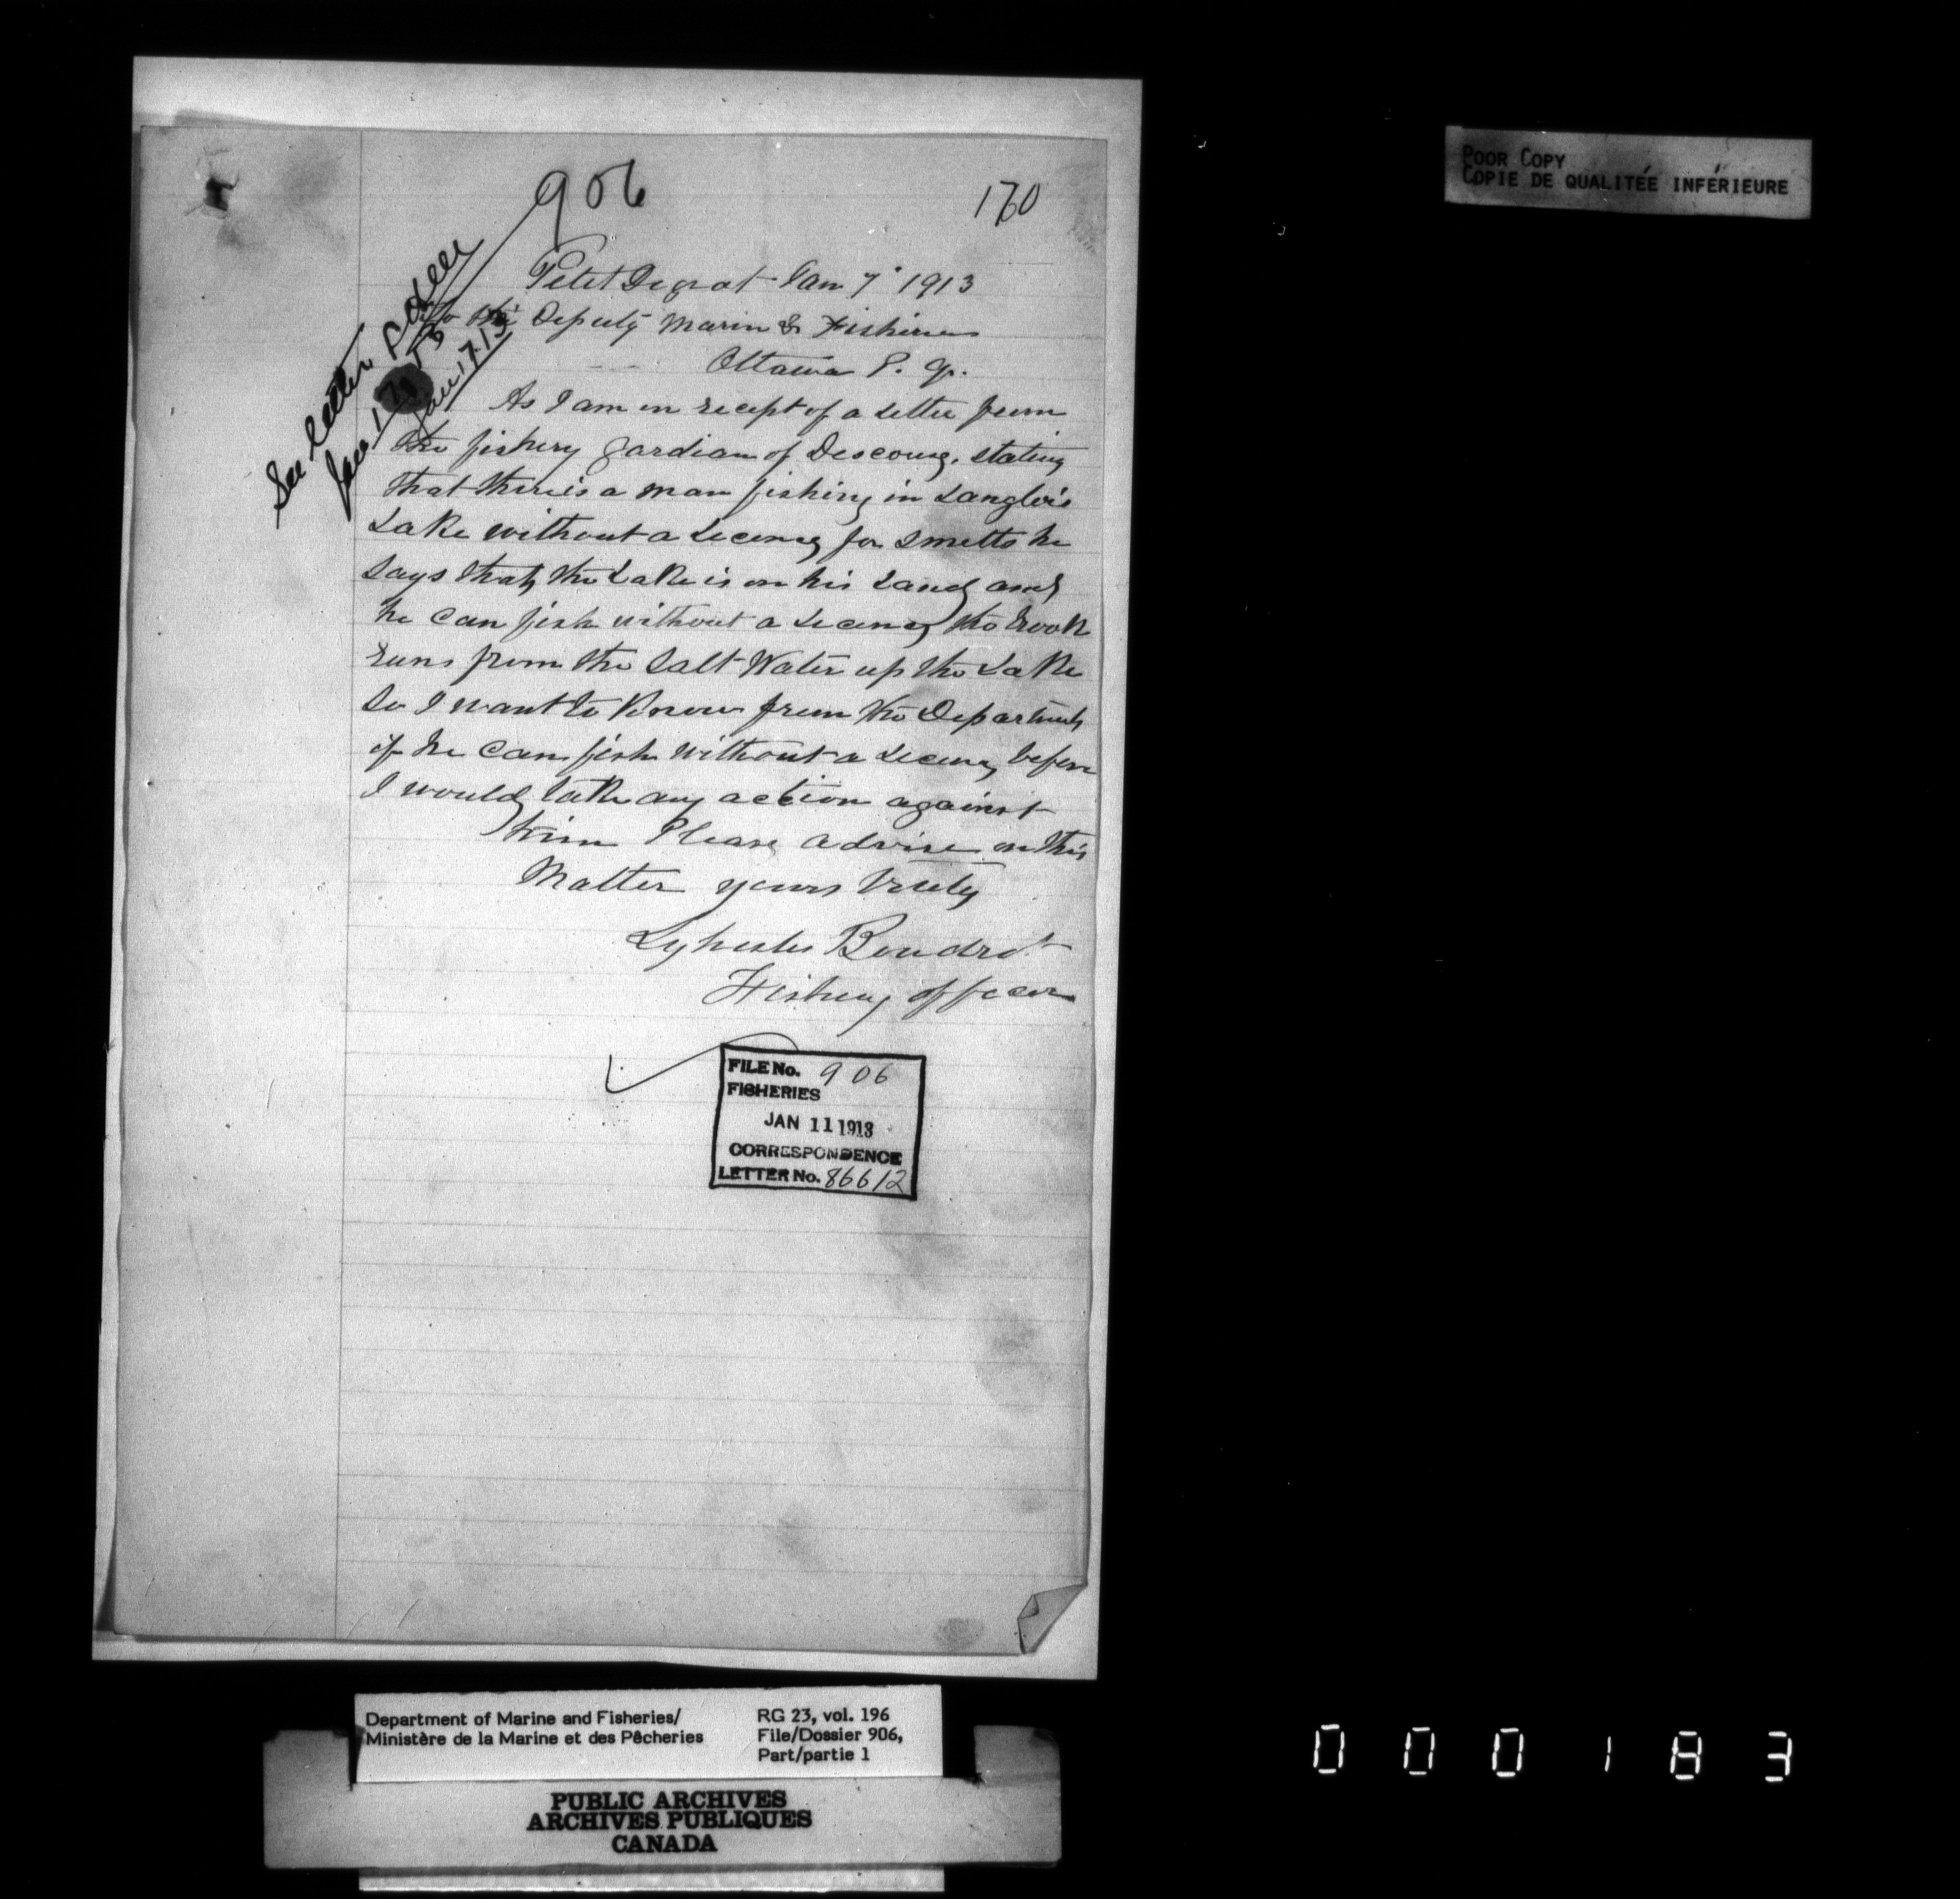 906
170
Petit Degrat Jan 7" 1913
To the Deputy Marin & Fisheries
Ottawa P. Q.
As I am in recept of a Letter from
the fishery gardian of Descouse, stating
that there is a man fishing in Langlois
Lake without a Licence for Smelts he
Says that the Lake is on his Land and
he can fish without a Licence the brook
runs from the Salt Water up the Lake
So I want to Know from the Department
if he can fish without a Licence before
I would take any action against
him Please advise on this
Matter yours truly
Sylvester Boudrot
Fishery officer
See letter
Jan 17 13
Jan 17.13
FILE No. 906
FISHERIES
JAN 11 1913
CORRESPONDENCE
LETTER No. 86612
POOR COPY
COPIE DE QUALITÉE INFÉRIEURE
Department of Marine and Fisheries/
Ministère de la Marine et des Pêcheries
RG 23, vol. 196
File/Dossier 906,
Part/partie 1
PUBLIC ARCHIVES
ARCHIVES PUBLIQUES
CANADA
000183